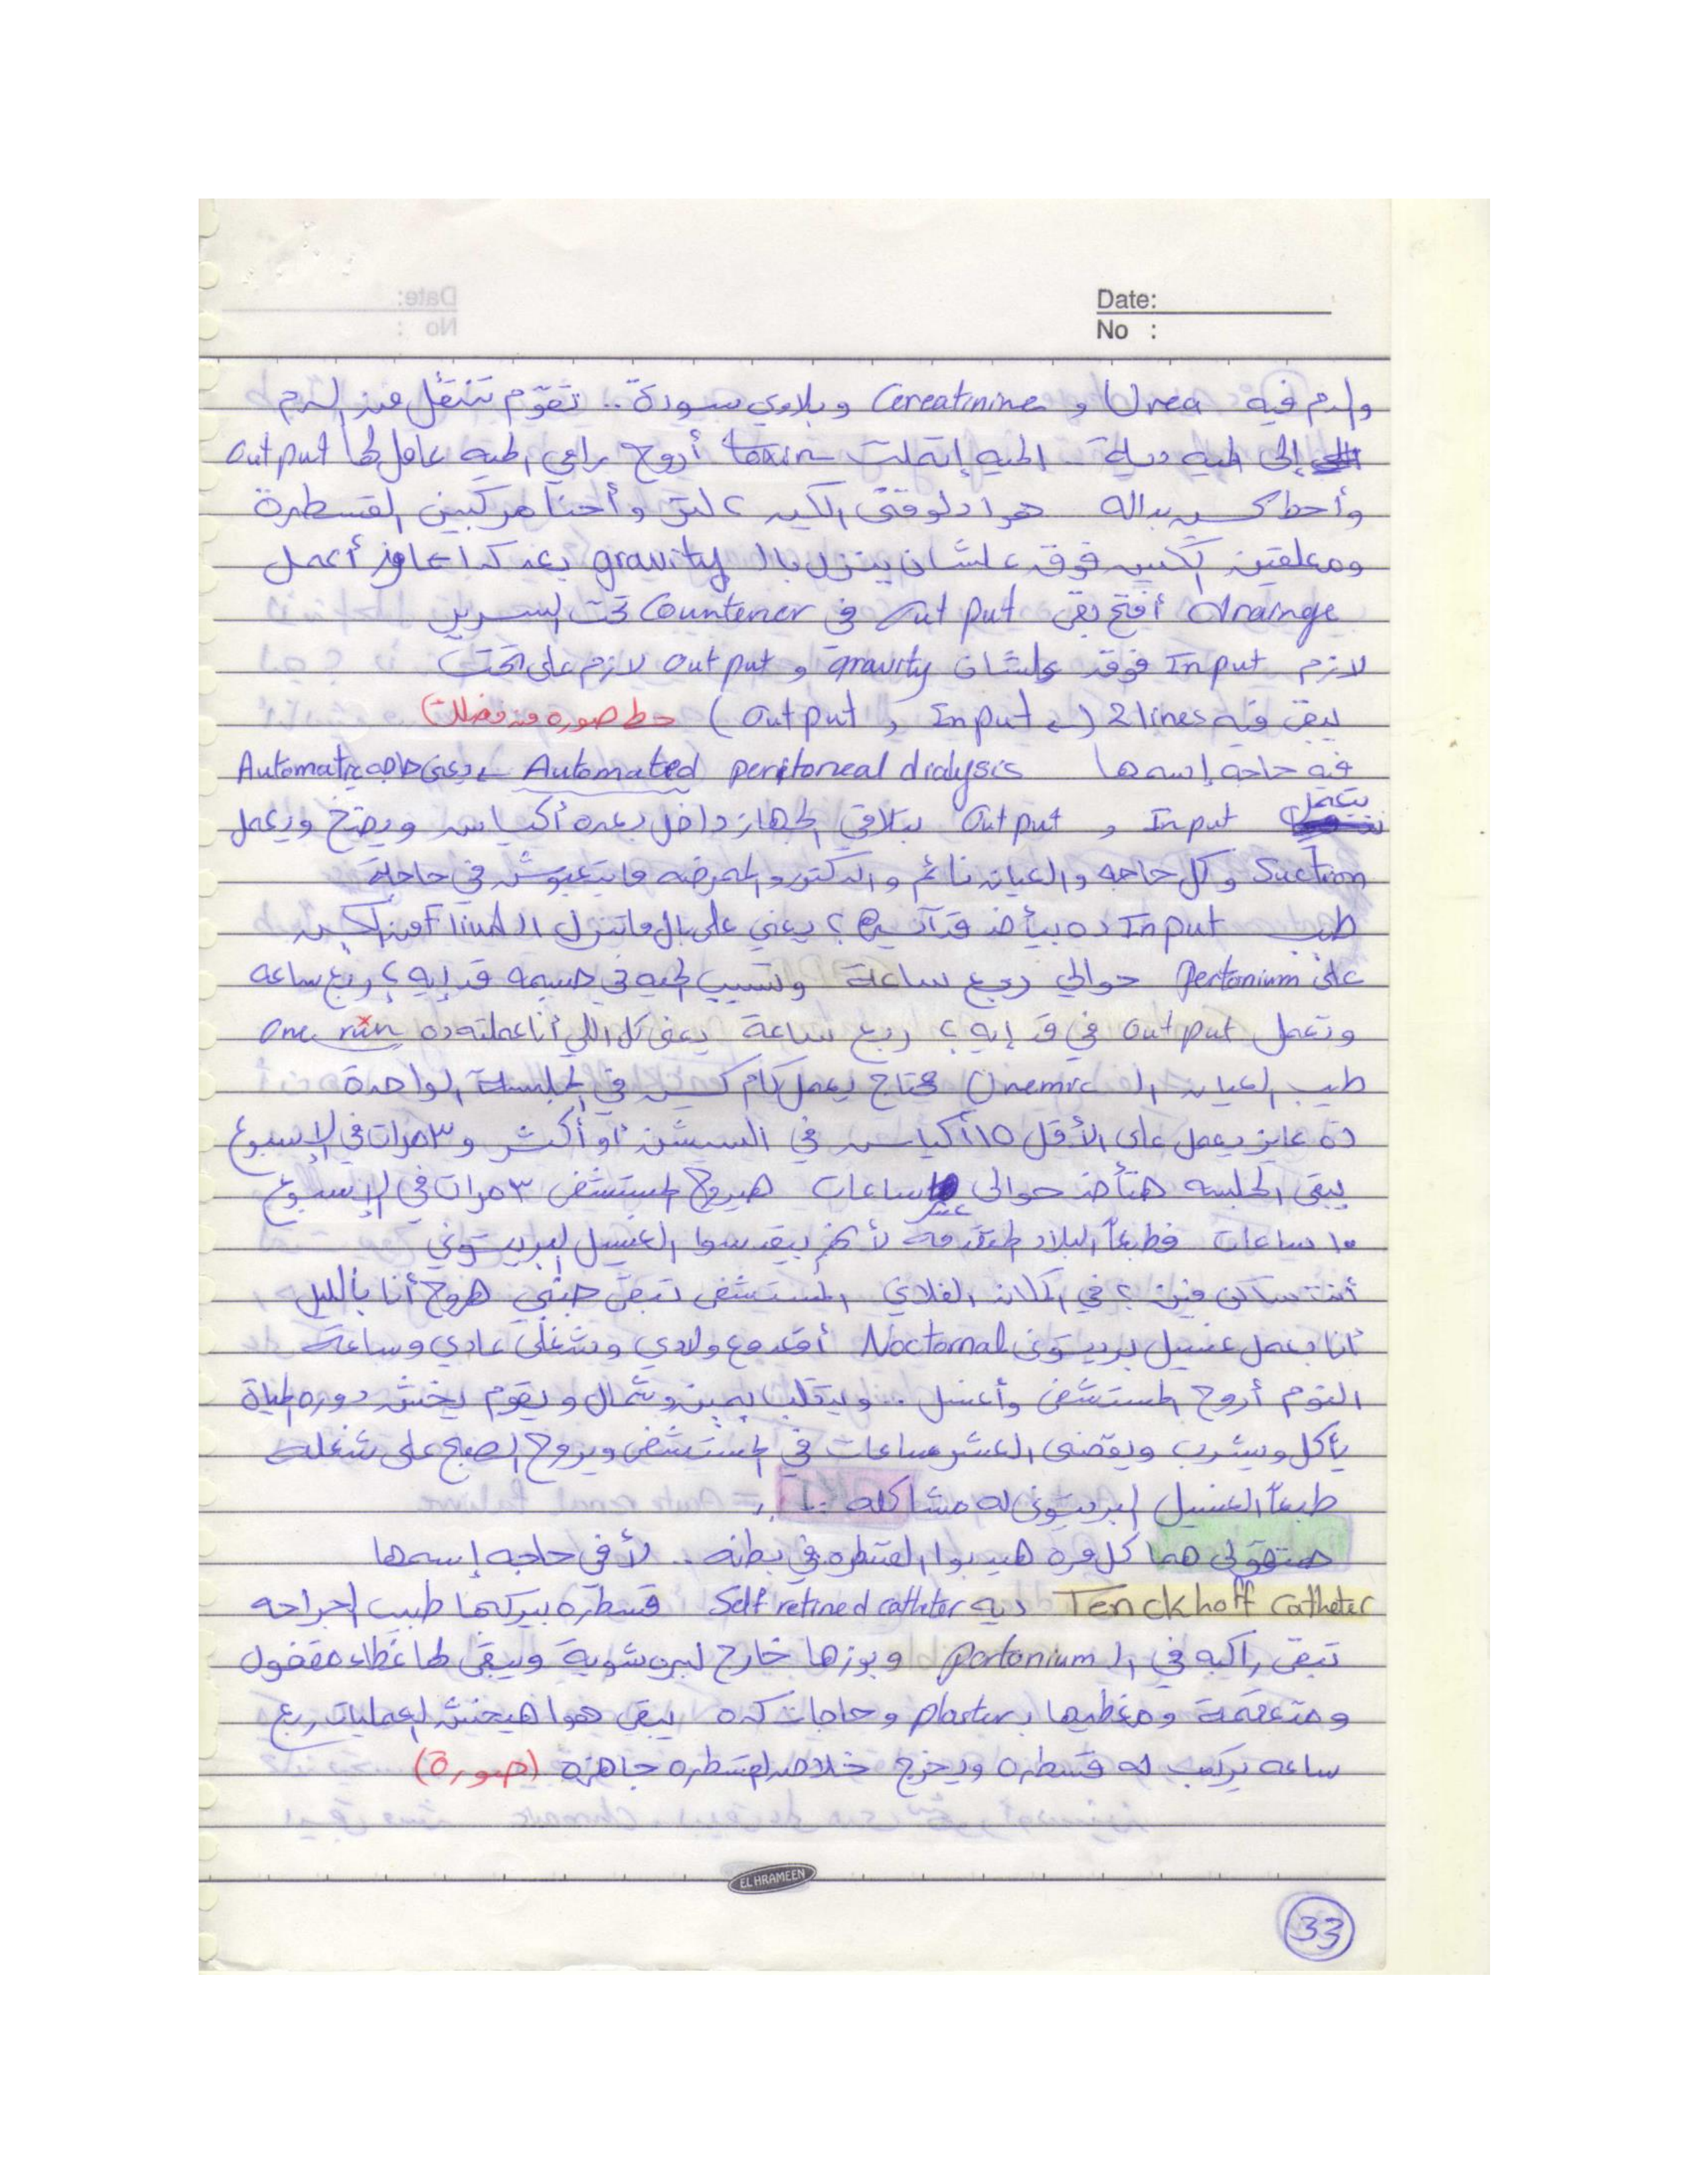 Date:
No :
والدم فيه Urea و Cereatinine وبلاوي سودة .. تقوم تتنقل من الدم
إلى الميه ديه .. الميه إتملت toxin أروح رامي الميه عامل لها output
وأحط كيس بداله هوا دلوقتى الكيس ٢ لتر وأحنا مركبين القسطرة
ومعلقين الكيس فوق علشان ينزل بالـ gravity بعد كدا عاوز أعمل
drainge أفتح بقى out put في Countener تحت السرير
لازم Input فوق علشان gravity و output لازم على تحت
يبقى فيه 2 lines (Input و output) حط صوره من فضلك
فيه حاجه إسمها Automated peritoneal dialysis يعنى حاجه Automatic
بتعمل Input و output بتلاقي الجهاز داخل بعده أكياس ويضخ ويعمل
Suction وكل حاجه والعيان نائم والدكتور والممرضه مابيتعبوش في حاجة
طب Input ده بيأخد قد آد إيه؟ يعني على بال ماتنزل الـ Fluid من الكيس
على Pertonium حوالي ربع ساعة وتسيب الميه في جسمه قد إيه؟ ربع ساعه
وتعمل output في قد إيه؟ ربع ساعة يعنى كل اللي أنا عملته ده one run
طيب العيان الـ Uremic محتاج يعمل كام كيس في الجلسة الواحدة
ده عايز يعمل على الأقل ١٥ أكياس في السيشن أو أكثر و ٣ مرات في الإسبوع
يبقى الجلسه هتأخد حوالى عشر ساعات هيروح المستشفى ٣ مرات في الإسبوع
١٠ ساعات فطبعاً البلاد المتقدمه لأنهم بيقدسوا الغسيل البريتونى
أنت ساكن فين؟ في المكان الفلاني المستشفى تبقى جنبي هروح أنا بالليل
أنا بعمل غسيل بريتونى Noctornal أقعد مع ولادي وشغلى عادي وساعة
النوم أروح المستشفى وأغسل .. ويتقلب يمين وشمال ويقوم يخش دورة المياة
يأكل ويشرب ويقضى العشر ساعات في المستشفى ويروح الصبح على شغله
طبعاً الغسيل البريتونى له مشاكله ...
هتقولى هما كل مره هيدبوا القسطره في بطنه .. لأ في حاجه إسمها
Tenckhoff catheter ديه Self retined catheter قسطره بيركبها طبيب الجراحه
تبقى راكبه في الـ Pertonium وبوزها خارج لبره شوية ويبقى لها غطاء مقفول
ومتعقمة ومغطيها بـ plaster وحاجات كده يبقى هوا هيخش العمليات ربع
ساعه يركب له قسطره ويخرج خلاص القسطره جاهزة (صورة)
EL HRAMEEN
33